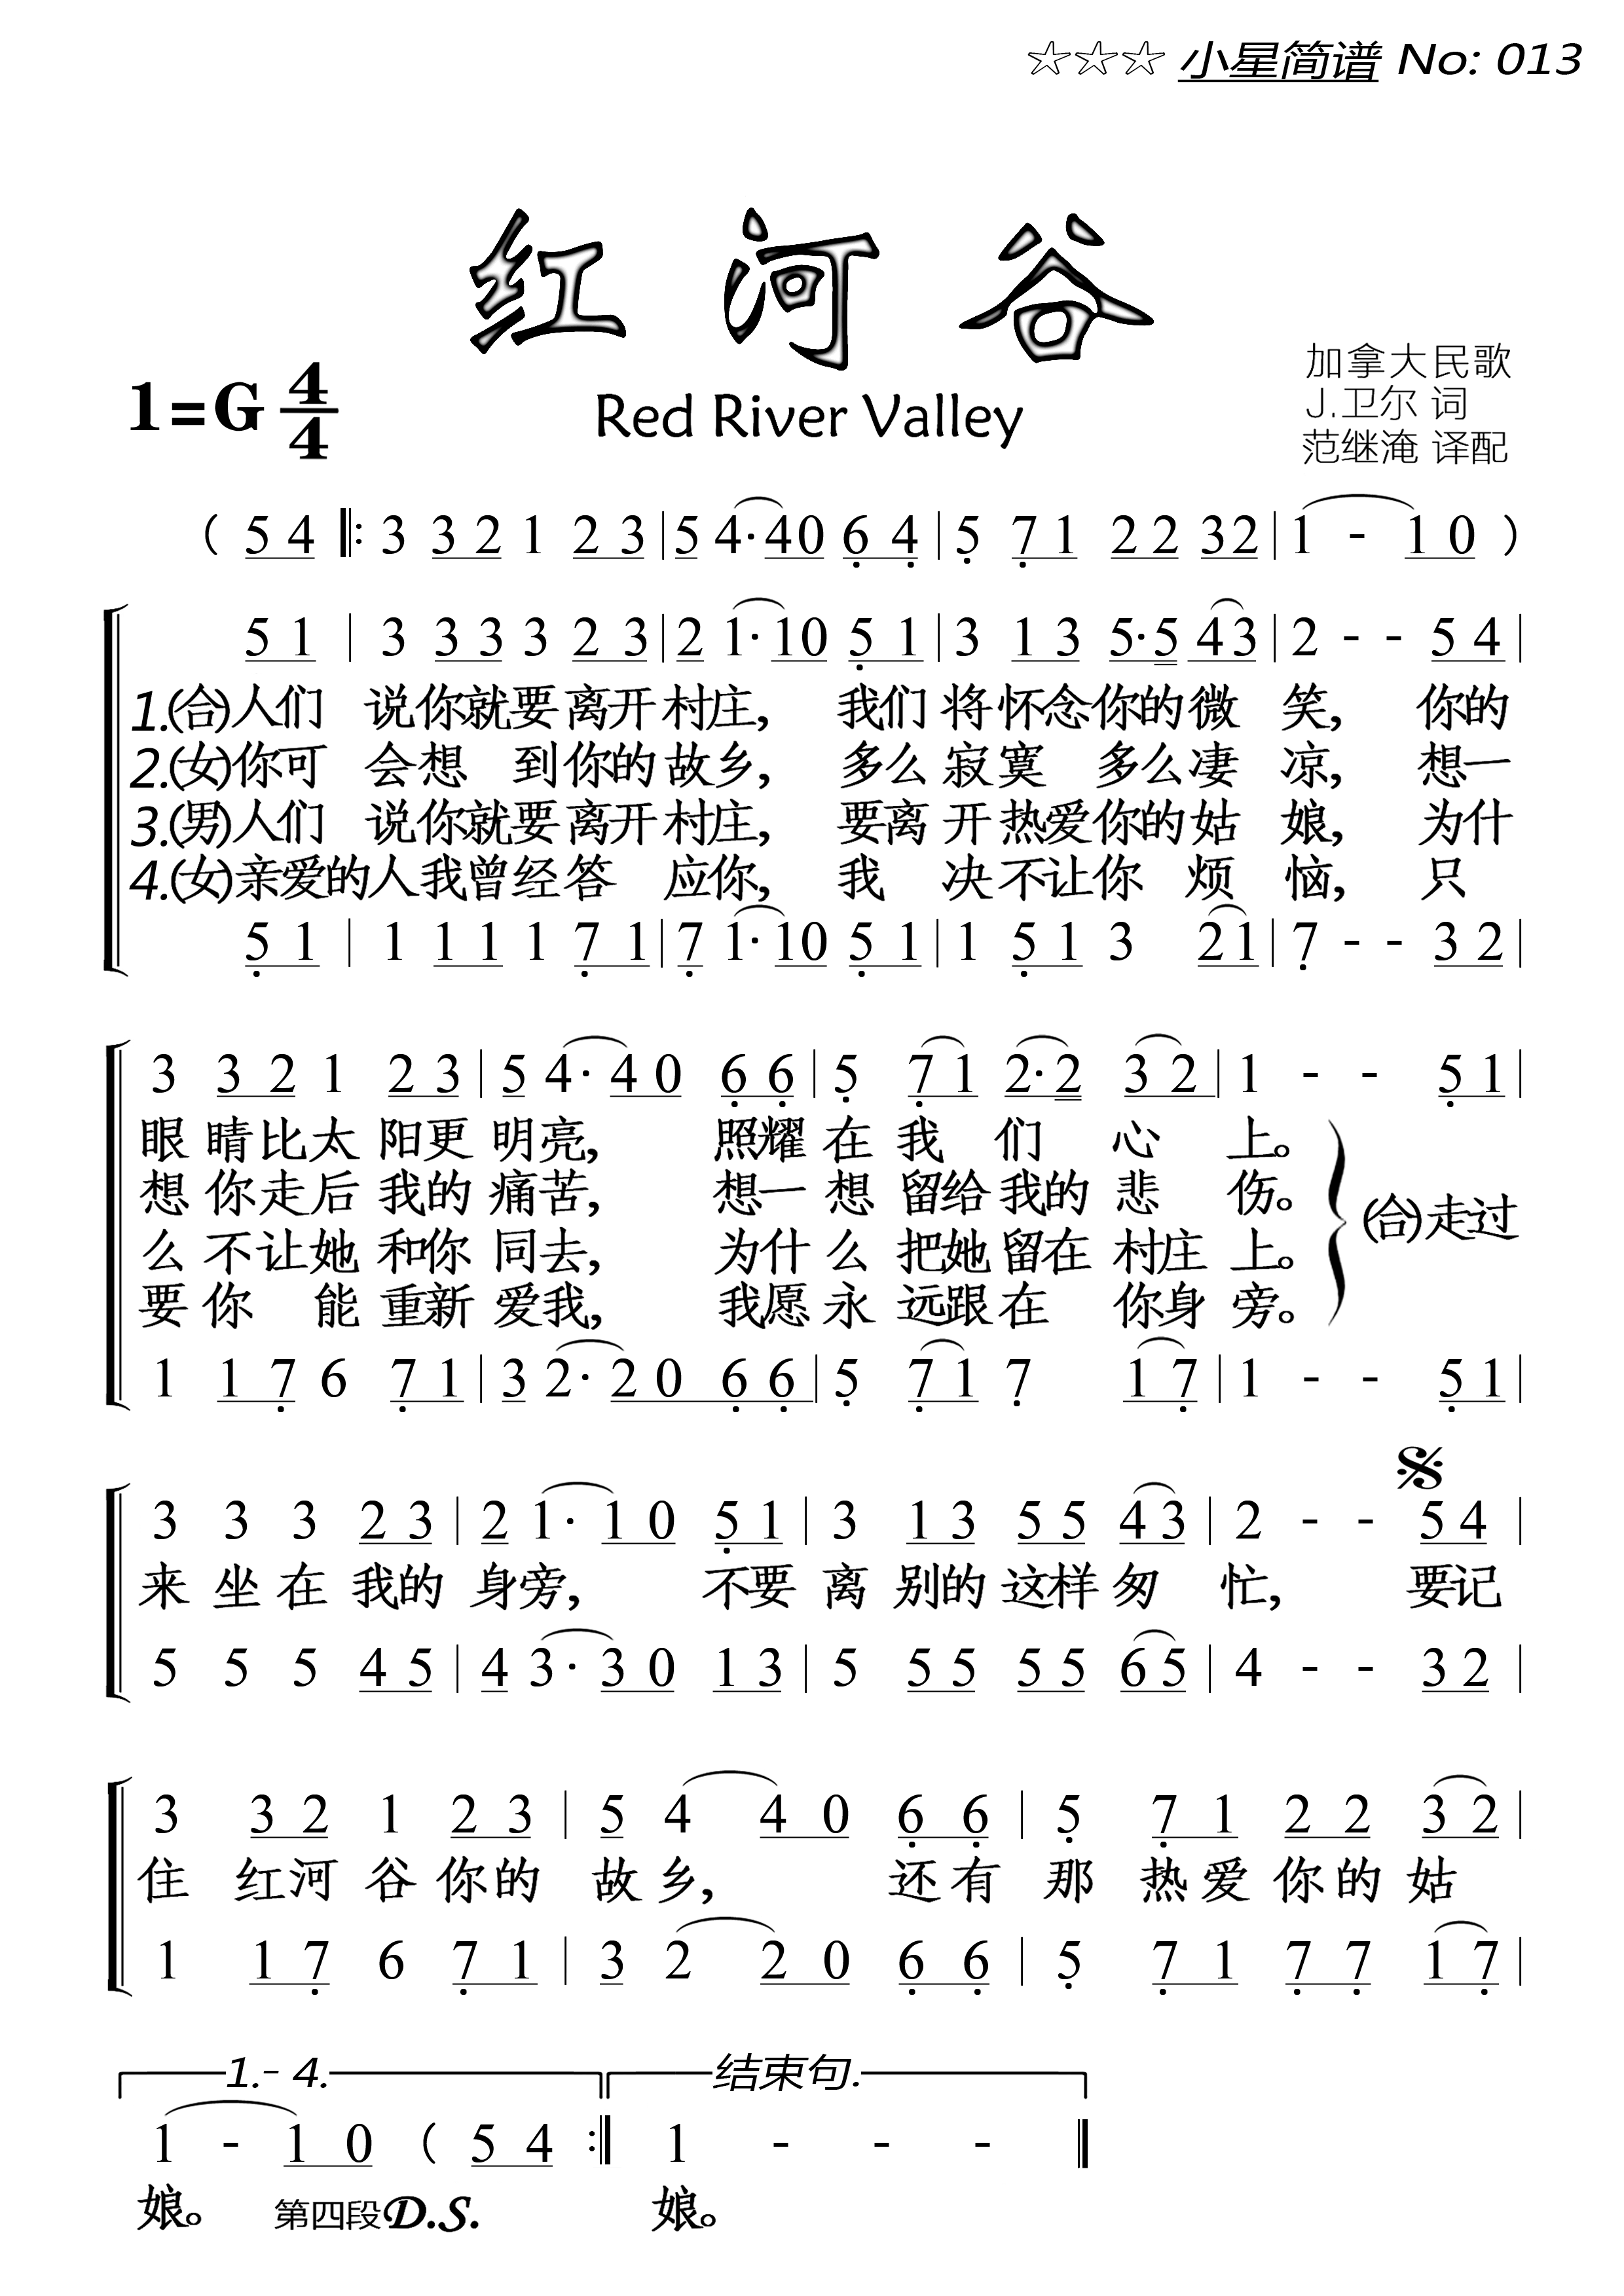 ☆☆☆ 小星简谱 No: 013
红 河 谷
Red River Valley
1=G 4/4
加拿大民歌
J.卫尔 词
范继淹 译配
( 5 4 ‖: 3 3 2 1 2 3 | 5 4· 4 0 6̣ 4̣ | 5̣ 7̣ 1 2 2 3 2 | 1 - 1 0 )
5 1 | 3 3 3 3 2 3 | 2 1· 1 0 5̣ 1 | 3 1 3 5· 5 4 3 | 2 - - 5 4 |
1.(合)人们 说你就要离开村庄, 我们将怀念你的微 笑, 你的
2.(女)你可 会想 到你的故乡, 多么寂寞 多么凄 凉, 想一
3.(男)人们 说你就要离开村庄, 要离开热爱你的姑 娘, 为什
4.(女)亲爱的人我曾经答 应你, 我 决不让你 烦 恼, 只
5̣ 1 | 1 1 1 1 7̣ 1 | 7̣ 1· 1 0 5̣ 1 | 1 5̣ 1 3 2 1 | 7̣ - - 3 2 |
3 3 2 1 2 3 | 5 4· 4 0 6̣ 6̣ | 5̣ 7̣ 1 2· 2 3 2 | 1 - - 5̣ 1 |
眼 睛比太 阳更 明亮, 照耀 在 我 们 心 上。
想 你走后 我的 痛苦, 想一 想 留给我的 悲 伤。
(合)走过
么 不让她 和你 同去, 为什 么 把她留在 村庄 上。
要 你 能 重新 爱我, 我愿 永 远跟在 你身 旁。
1 1 7̣ 6 7̣ 1 | 3 2· 2 0 6̣ 6̣ | 5̣ 7̣ 1 7̣ 1 7̣ | 1 - - 5̣ 1 |
3 3 3 2 3 | 2 1· 1 0 5̣ 1 | 3 1 3 5 5 4 3 | 2 - - 5 4 |
来 坐 在 我的 身旁, 不要 离 别的 这样 匆 忙, 要记
5 5 5 4 5 | 4 3· 3 0 1 3 | 5 5 5 5 5 6 5 | 4 - - 3 2 |
3 3 2 1 2 3 | 5 4 4 0 6̣ 6̣ | 5̣ 7̣ 1 2 2 3 2 |
住 红河 谷 你的 故 乡, 还有 那 热爱 你的 姑
1 1 7̣ 6 7̣ 1 | 3 2 2 0 6̣ 6̣ | 5̣ 7̣ 1 7̣ 7̣ 1 7̣ |
1.- 4. 结束句.
1 - 1 0 ( 5 4 :‖ 1 - - - ‖
娘。 第四段D.S. 娘。